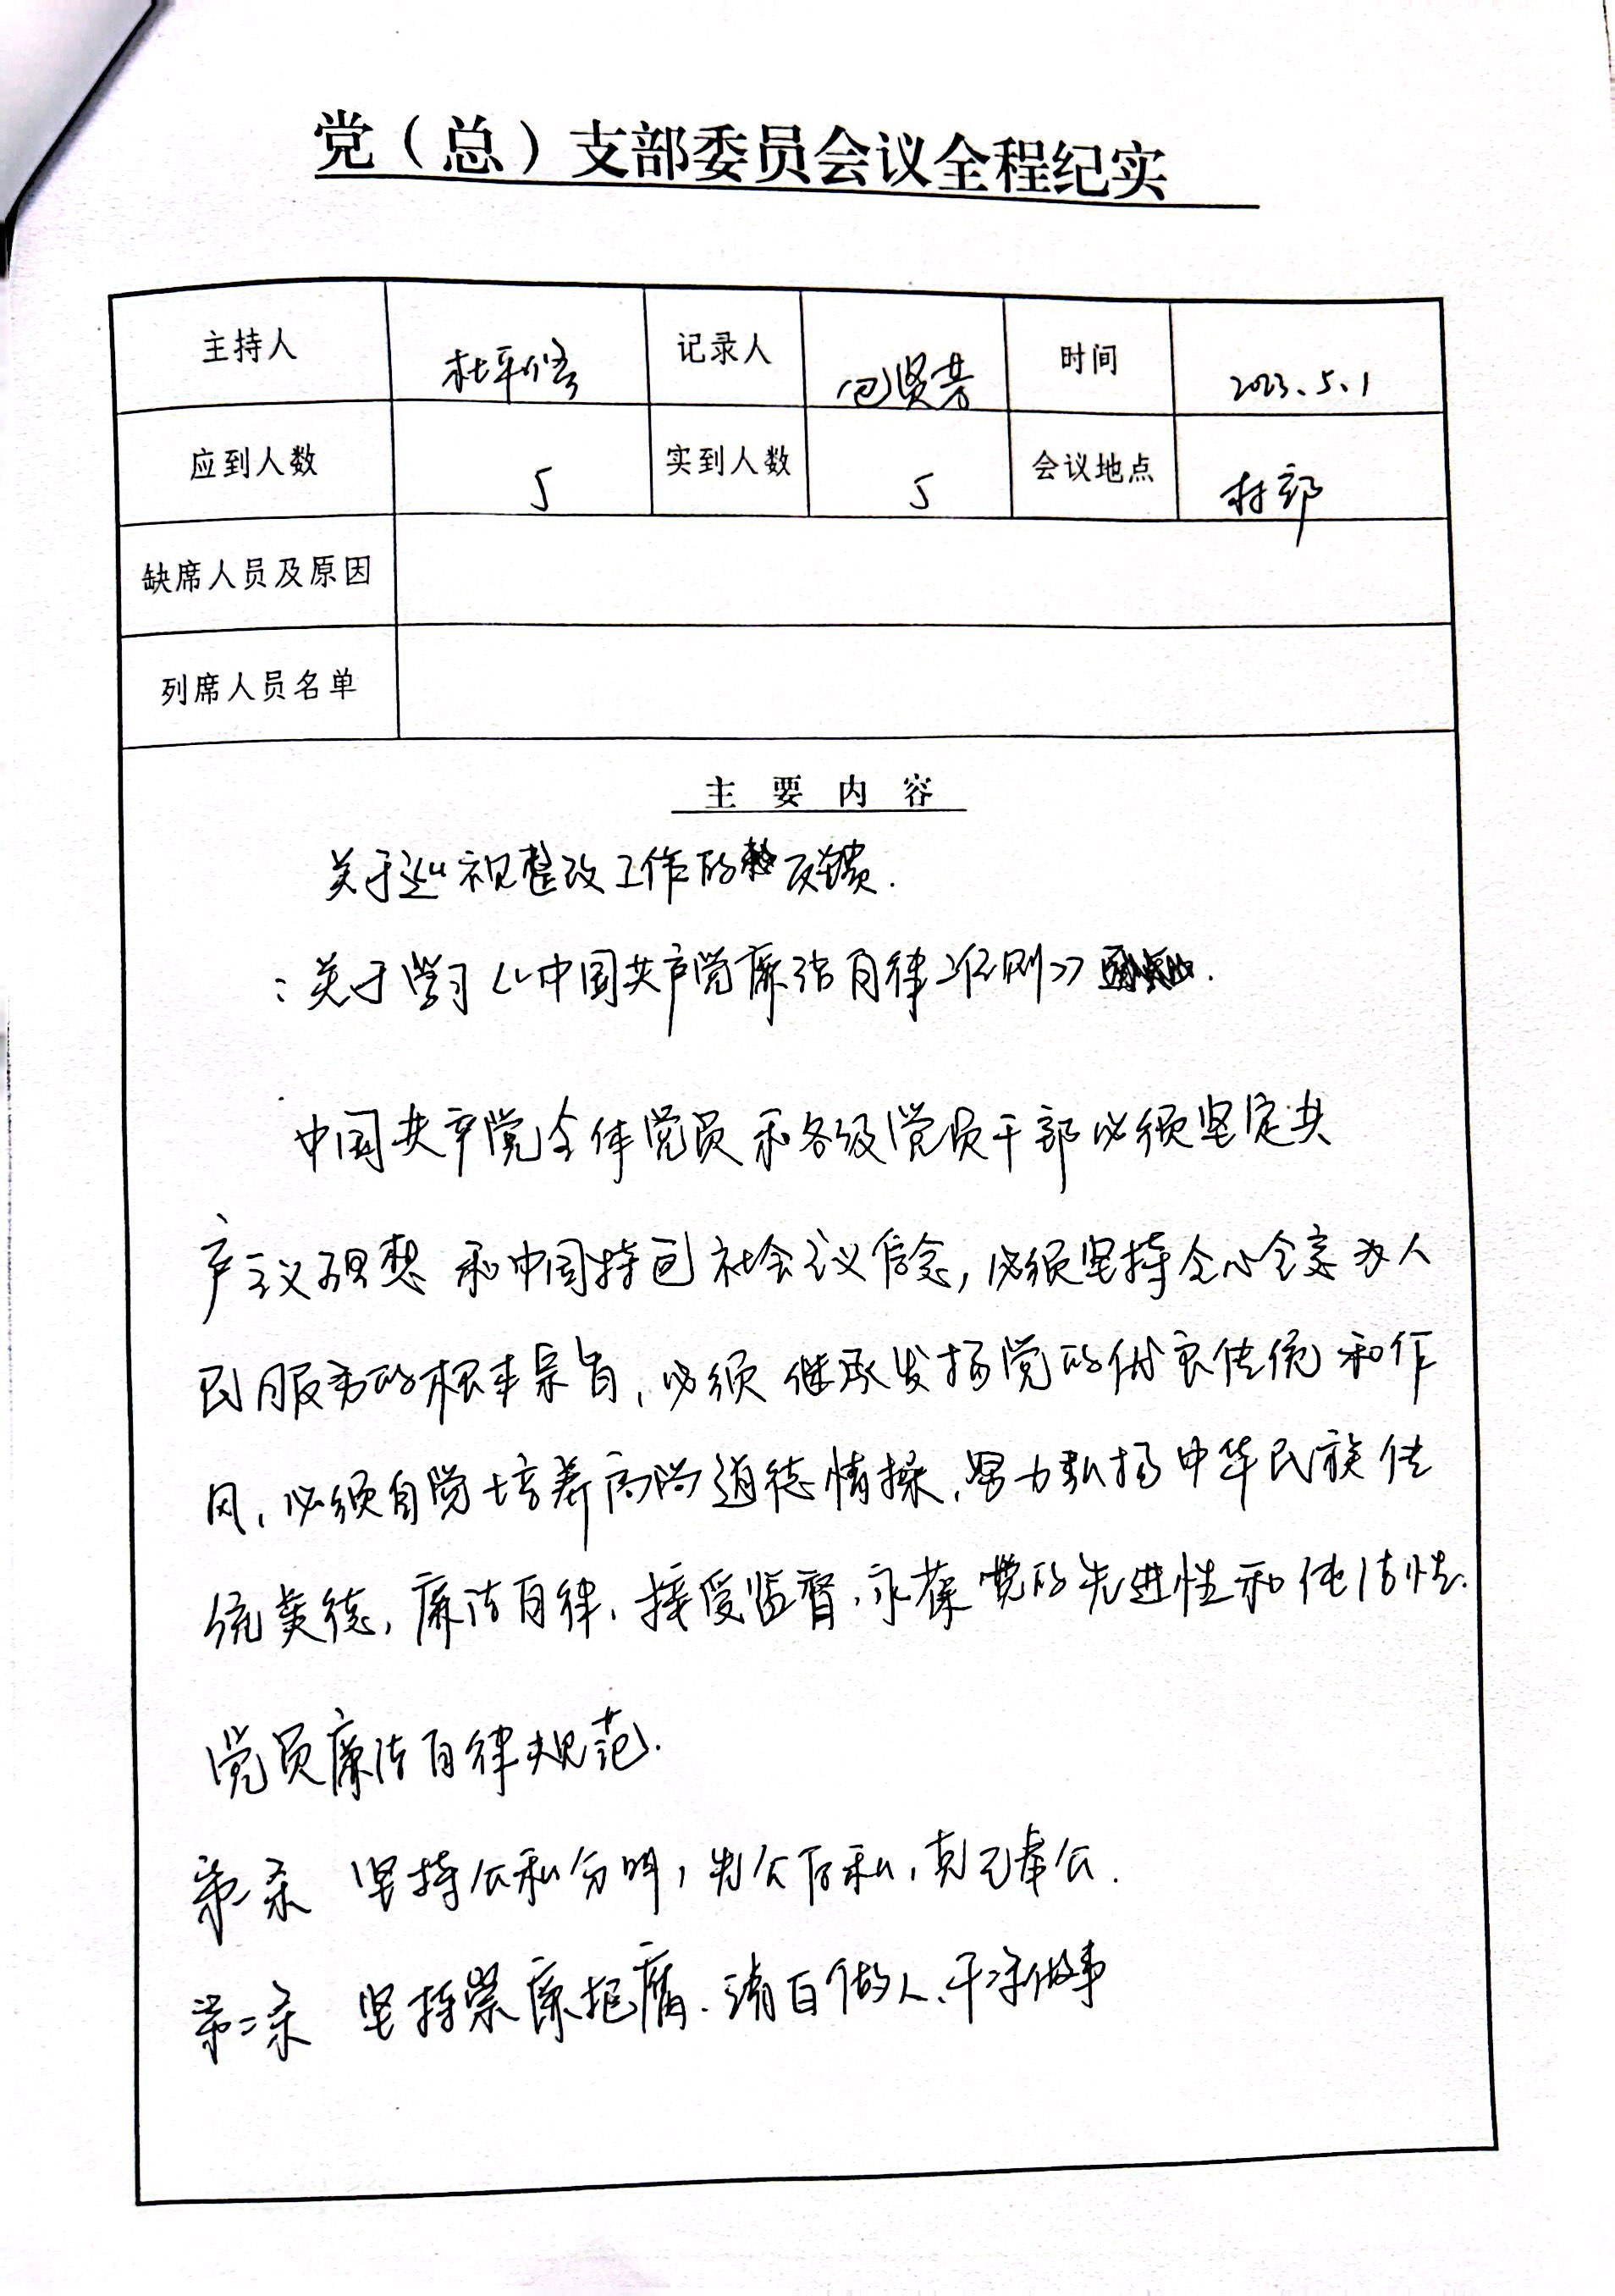 党（总）支部委员会议全程纪实
主持人 杜平 记录人 包贤芳 时间 2023.5.1
应到人数 5 实到人数 5 会议地点 村部
缺席人员及原因
列席人员名单
主要内容
关于巡视整改工作的反馈.
:关于学习《中国共产党廉洁自律准则》.
中国共产党全体党员和各级党员干部必须坚定共
产主义理想和中国特色社会主义信念,必须坚持全心全意为人
民服务的根本宗旨,必须继承发扬党的优良传统和作
风,必须自觉培养高尚道德情操,努力弘扬中华民族传
统美德,廉洁自律,接受监督,永葆党的先进性和纯洁性.
党员廉洁自律规范.
第一条 坚持公私分明,先公后私,克己奉公.
第二条 坚持崇廉拒腐.清白做人、干净做事